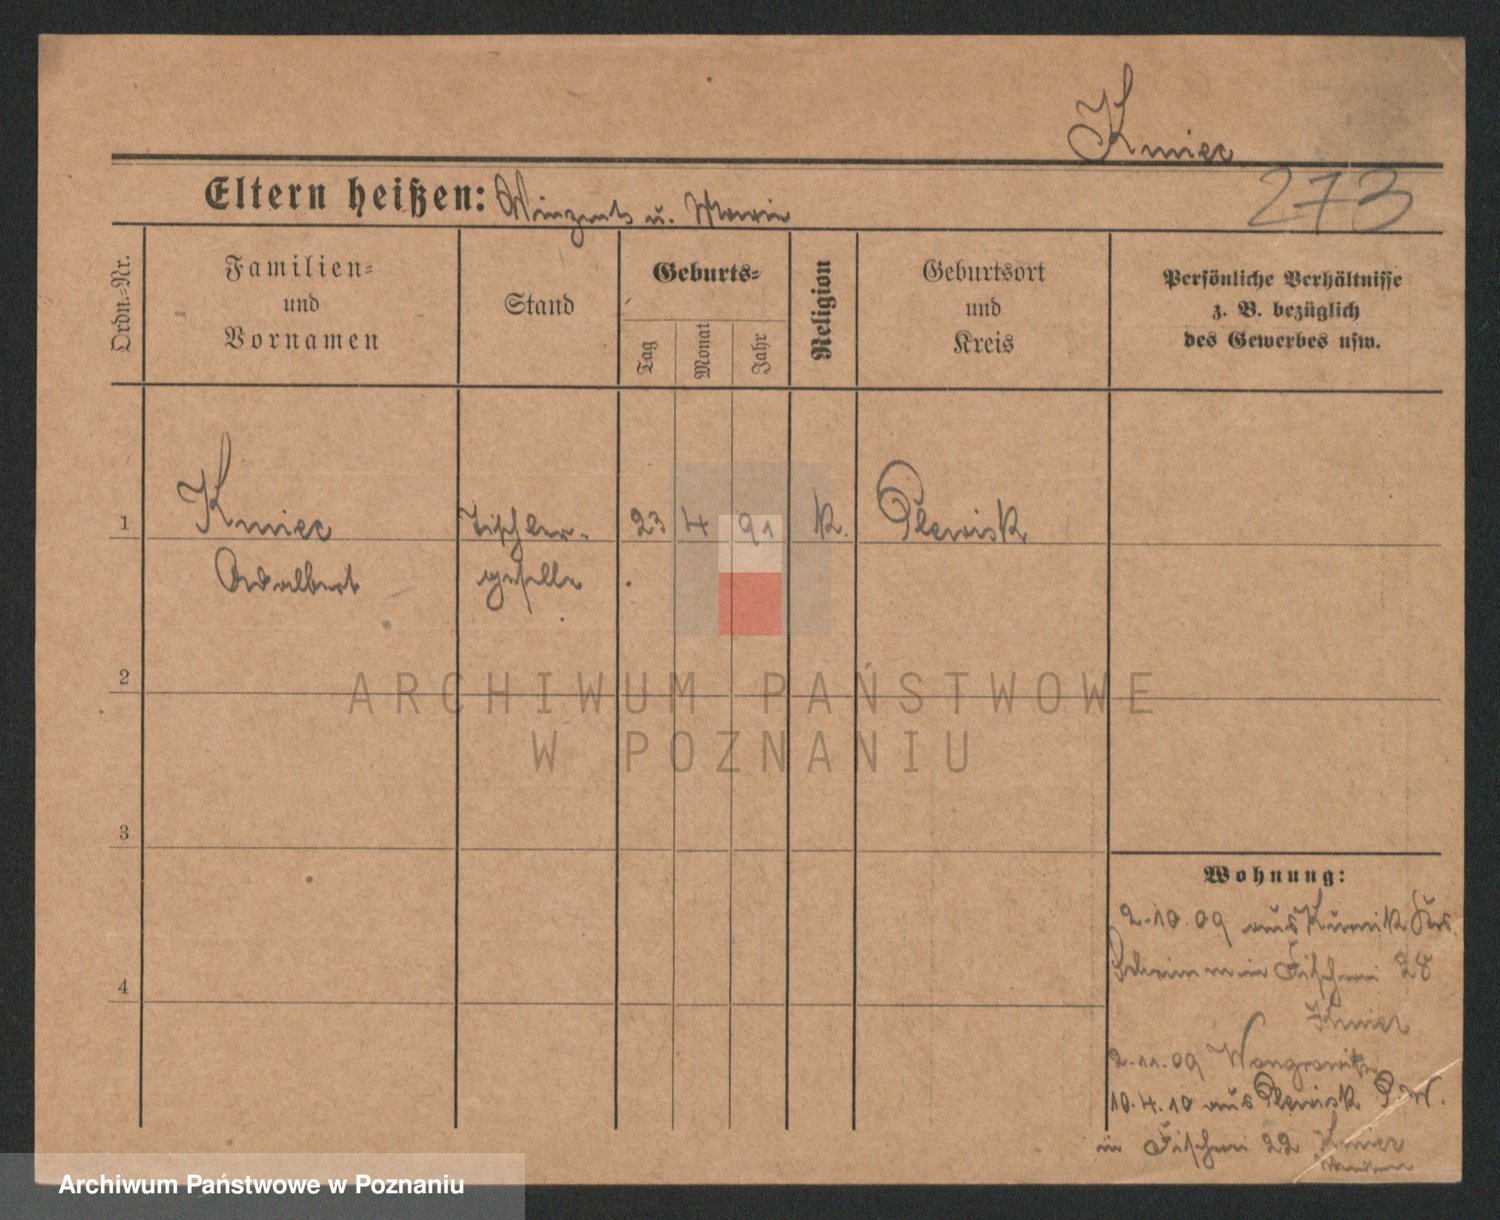 Kmiec
273
Eltern heißen: Winzents u. Marie
Ordn.-Nr.
Familien-
und
Vornamen
Stand
Geburts-
Tag
Monat
Jahr
Religion
Geburtsort
und
Kreis
Persönliche Verhältnisse
z. B. bezüglich
des Gewerbes usw.
1
Kmiec
Adalbert
Tischler-
geselle
23
4
91
K.
Plewisk
2
3
4
Wohnung:
2.10.09 aus Kurnik Krs.
Schrimm in Fischerei 28
Kmiec
2.11.09 Wongrowitz
10.4.10 aus Plewisk P.W.
in Fischerei 22 Kmiec
ARCHIWUM PAŃSTWOWE
W POZNANIU
Archiwum Państwowe w Poznaniu